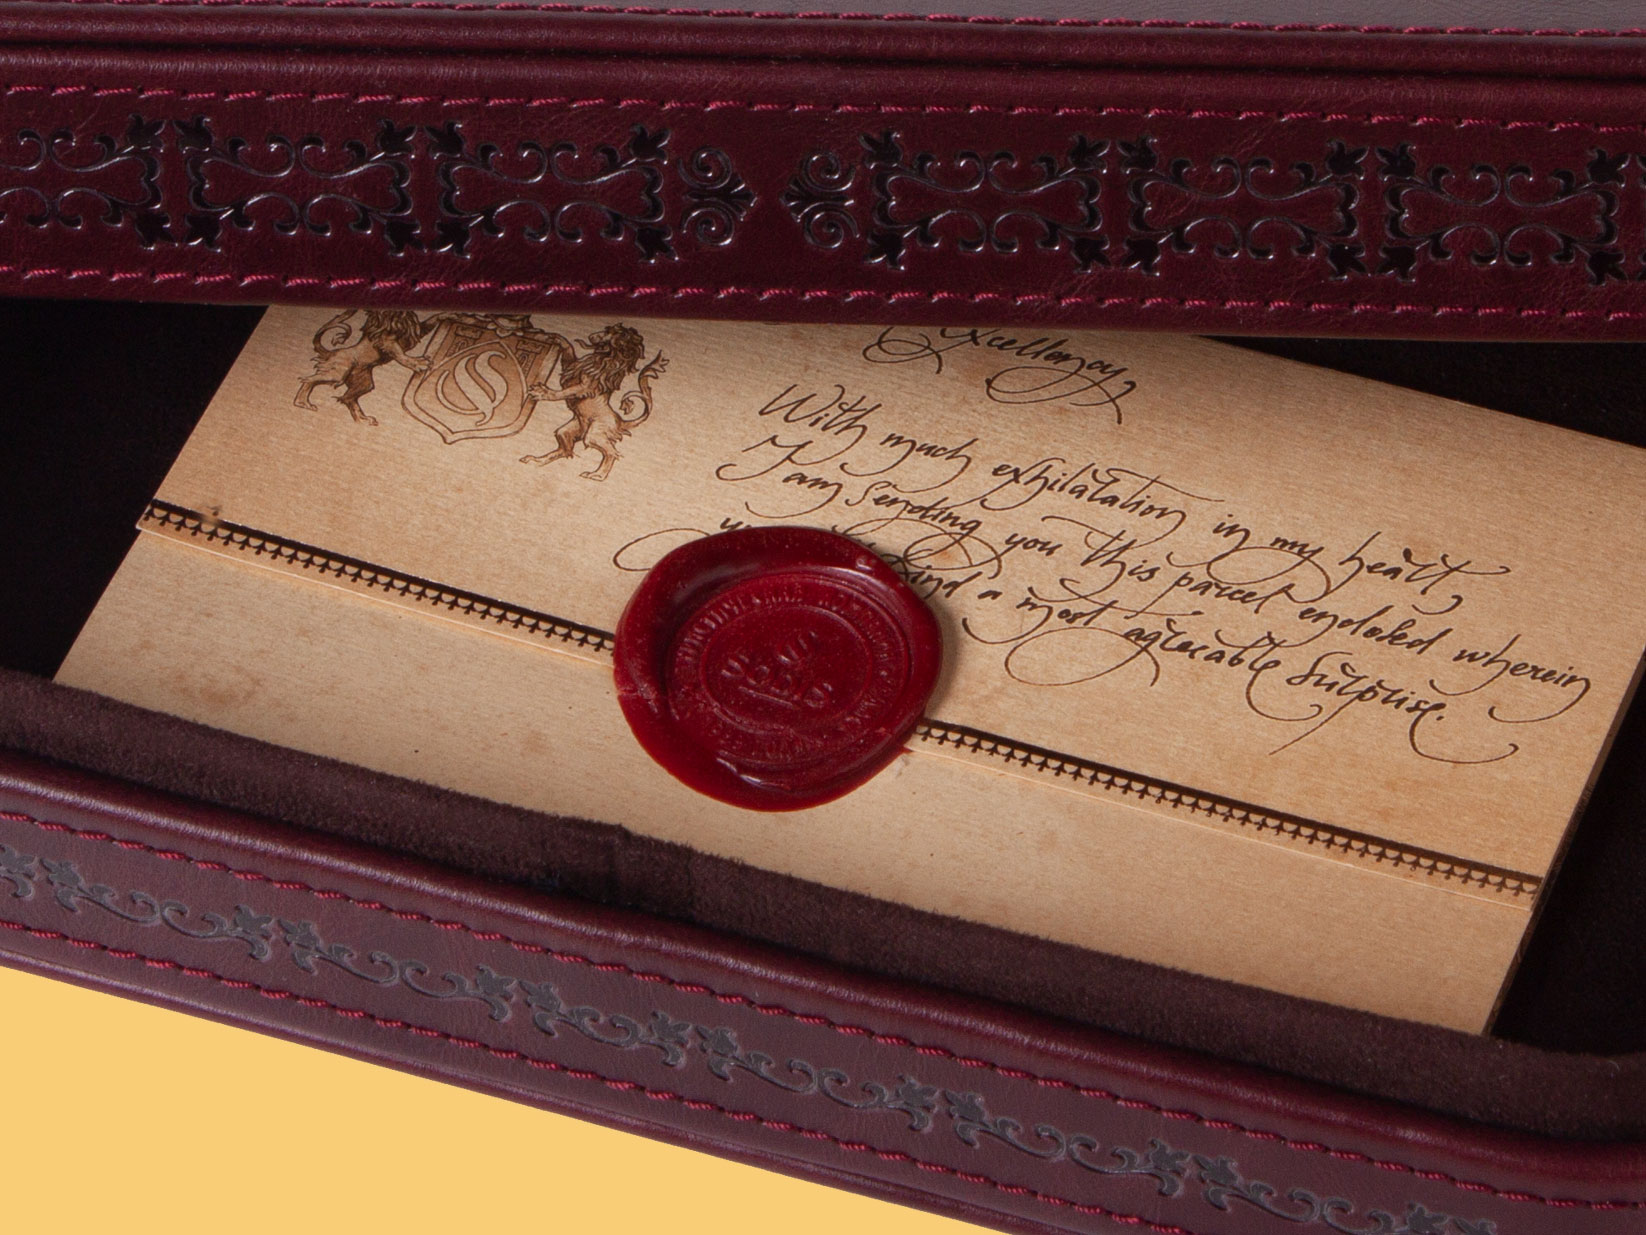 S
Excellency,
With much exhilatation in my heart,
I am sending you this parcel encloked wherein
find a most agreeable surprise.